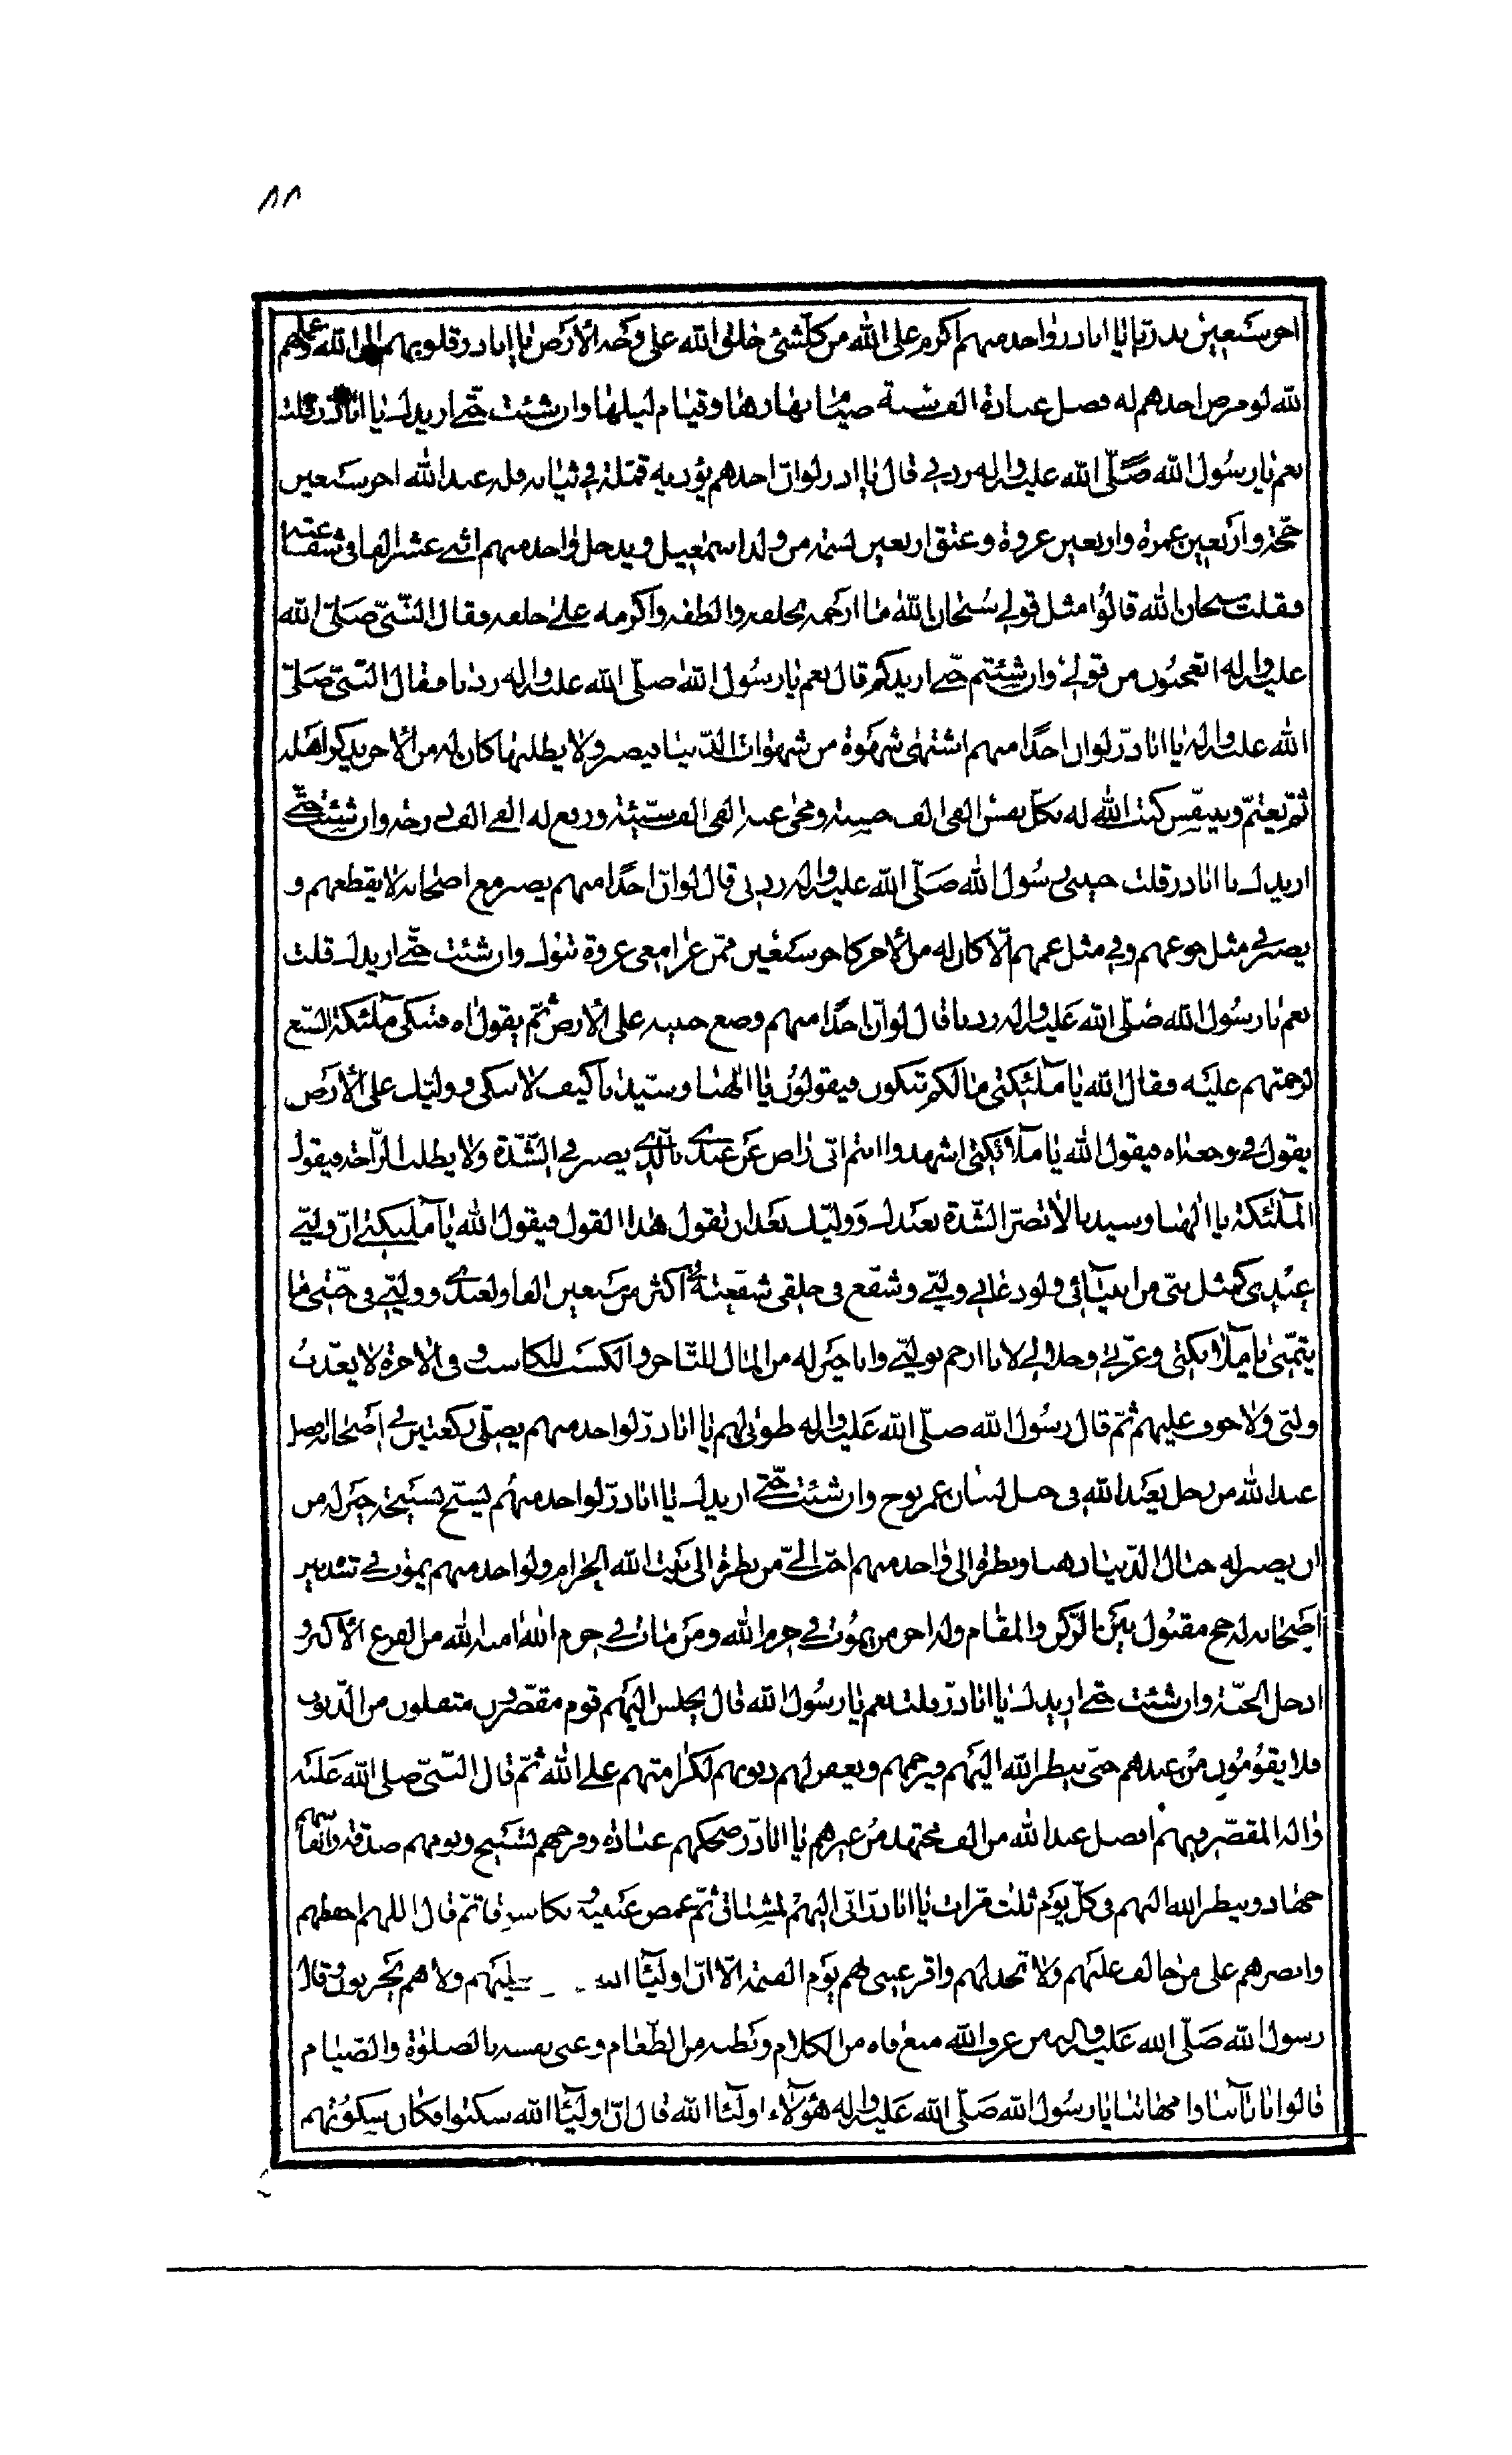 ٨٨
اجر سبعين بدريا يا اباذر واحد منهم اكرم على الله من كلّ شئ خلق الله على وجه الارض يا اباذر قلوبهم الى الله وعملهم
لله لو مرض احدهم له فضل عبادة الف سنة صيام نهارها وقيام ليلها وان شئت حتّى ازيدك يا اباذر قلت
نعم يا رسول الله صلّى الله عليه واله زدنى قال يا اباذر لو انّ احدهم يؤذيه قمّلة في ثيابه فله عند الله اجر سبعين
حجّة واربعين عمرة واربعين غزوة وعتق اربعين نسمة من ولد اسمعيل ويدخل واحد منهم اثنى عشر الفا في شفاعته
فقلت سبحان الله قالوا مثل قولى سبحان الله ما ارحمه بخلقه والطفه واكرمه على خلقه فقال النّبىّ صلّى الله
عليه واله اتعجبون من قولى وان شئتم حتّى ازيدكم قال نعم يا رسول الله صلّى الله عليه واله زدنا فقال النّبىّ صلّى
الله عليه واله يا اباذرّ لو ان احدًا منهم اشتهى شهوة من شهوات الدّنيا فيصبر ولا يطلبها كان له من الاجر بذكر اهله
ثمّ يغتمّ ويتنفّس كتب الله له بكلّ نفس الفى الف حسنة ومحى عنه الفى الف سيّئة ورفع له الفى الف درجة وان شئت حتّى
ازيدك يا اباذر قلت حبيبى رسول الله صلّى الله عليه واله زدنى قال لو انّ احدًا منهم يصبر مع اصحابه لا يقطعهم و
يصبر في مثل جوعهم وفي مثل غمهم الّا كان له من الاجر كاجر سبعين ممّن غزا معى غزوة تبوك وان شئت حتّى ازيدك قلت
نعم يا رسول الله صلّى الله عليه واله زدنا قال لو انّ احدًا منهم وضع جبينه على الارض ثمّ يقول اه فتبكى ملئكة السّبع
لرحمتهم عليه فقال الله يا ملئكتى ما لكم تبكون فيقولون يا الهنا وسيّدنا كيف لا نبكى ووليّك على الارض
يقول في وجعه اه فيقول الله يا ملائكتى اشهدوا انتم انّى راض عن عبدى بالّذى يصبر في الشّدّة ولا يطلب الرّاحة فيقول
الملئكة يا الهنا وسيدنا لا تضرّ الشّدة بعبدك ووليّك بعد ان تقول هذا القول فيقول الله يا مليكتى انّ وليّى
عندى كمثل نبىّ من انبيائى ولو دعانى وليّى وشفع فى خلقى شفّعته اكثر من سبعين الفا ولعبدى ووليّى في جنّتى ما
يتمنّى يا ملائكتى وعزّتى وجلالى لانا ارحم بوليّى وانا خير له من المال للتّاجر والكسب للكاسب وفى الاخرة لا يعذّب
وليّى ولا خوف عليهم ثمّ قال رسول الله صلّى الله عليه واله طوبى لهم يا اباذرّ لو احد منهم يصلّى ركعتين في اصحابه افضل
عند الله من رجل يعبد الله فى جبل لبنان عمر نوح وان شئت حتّى ازيدك يا اباذرّ لو احد منهم يسبّح تسبيحة خير له من
ان يصير له جبال الدّنيا ذهبا ونظرة الى واحد منهم احبّ الىّ من نظرة الى بيت الله الحرام ولو احد منهم يموت في شدة بين
اصحابه له حج مقبول بين الرّكن والمقام وله اجر من يموت في حرم الله ومن مات في حرم الله امنه الله من الفزع الاكبر و
ادخل الجنّة وان شئت حتّى ازيدك يا اباذرّ قلت نعم يا رسول الله قال يجلس اليهم قوم مقصّرون مثقلون من الذّنوب
فلا يقومون من عندهم حتّى ينظر الله اليهم فيرحمهم ويغفر لهم ذنوبهم لكرامتهم على الله ثمّ قال النّبىّ صلى الله عليه
واله المقصّر فيهم افضل عند الله من الف مجتهد من غيرهم يا اباذرّ ضحكهم عبادة وفرحهم تسبيح ونومهم صدقة وانفاسهم
جهاد وينظر الله اليهم فى كلّ يوم ثلث مرّات يا اباذرّ انّى اليهم لمشتاق ثمّ غمض عينيه وبكا شوقا ثمّ قال اللهم احفظهم
وانصرهم على من خالف عليهم ولا تخذلهم واقر عينى بهم يوم القيمة الا انّ اولياء الله عليهم ولا هم يحزنون وقال
رسول الله صلّى الله عليه واله من عرف الله منع فاه من الكلام وبطنه من الطّعام وعنى نفسه بالصلوة والصّيام
قالوا بابائنا وامهاتنا يا رسول الله صلّى الله عليه واله هؤلاء اولياء الله قال انّ اولياء الله سكتوا فكان سكوتهم